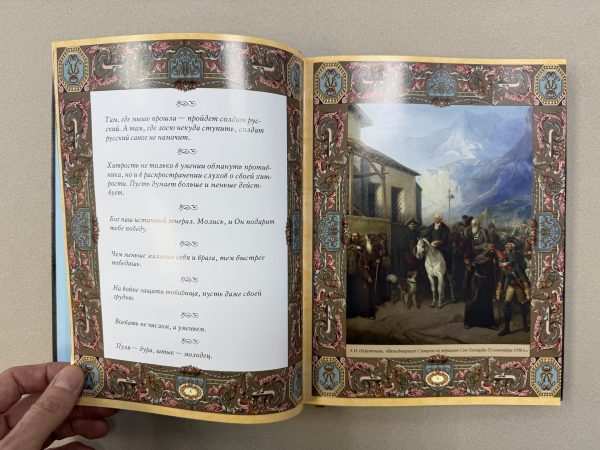 Там, где мышь прошла — пройдет солдат рус-
ский. А там, где лосю некуда ступить, солдат
русский сапог не намочит.
Хитрость не только в умении обмануть против-
ника, но и в распространении слухов о своей хит-
рости. Пусть думает больше и меньше дейст-
вует.
Бог наш истинный генерал. Молись, и Он подарит
тебе победу.
Чем меньше жалеешь себя и врага, тем быстрее
победишь.
На войне защити товарища, пусть даже своей
грудью.
Воевать не числом, а уменьем.
Пуля — дура, штык — молодец.
А. И. Шарлемань. «Фельдмаршал Суворов на вершине Сен-Готарда 13 сентября 1799 г.»